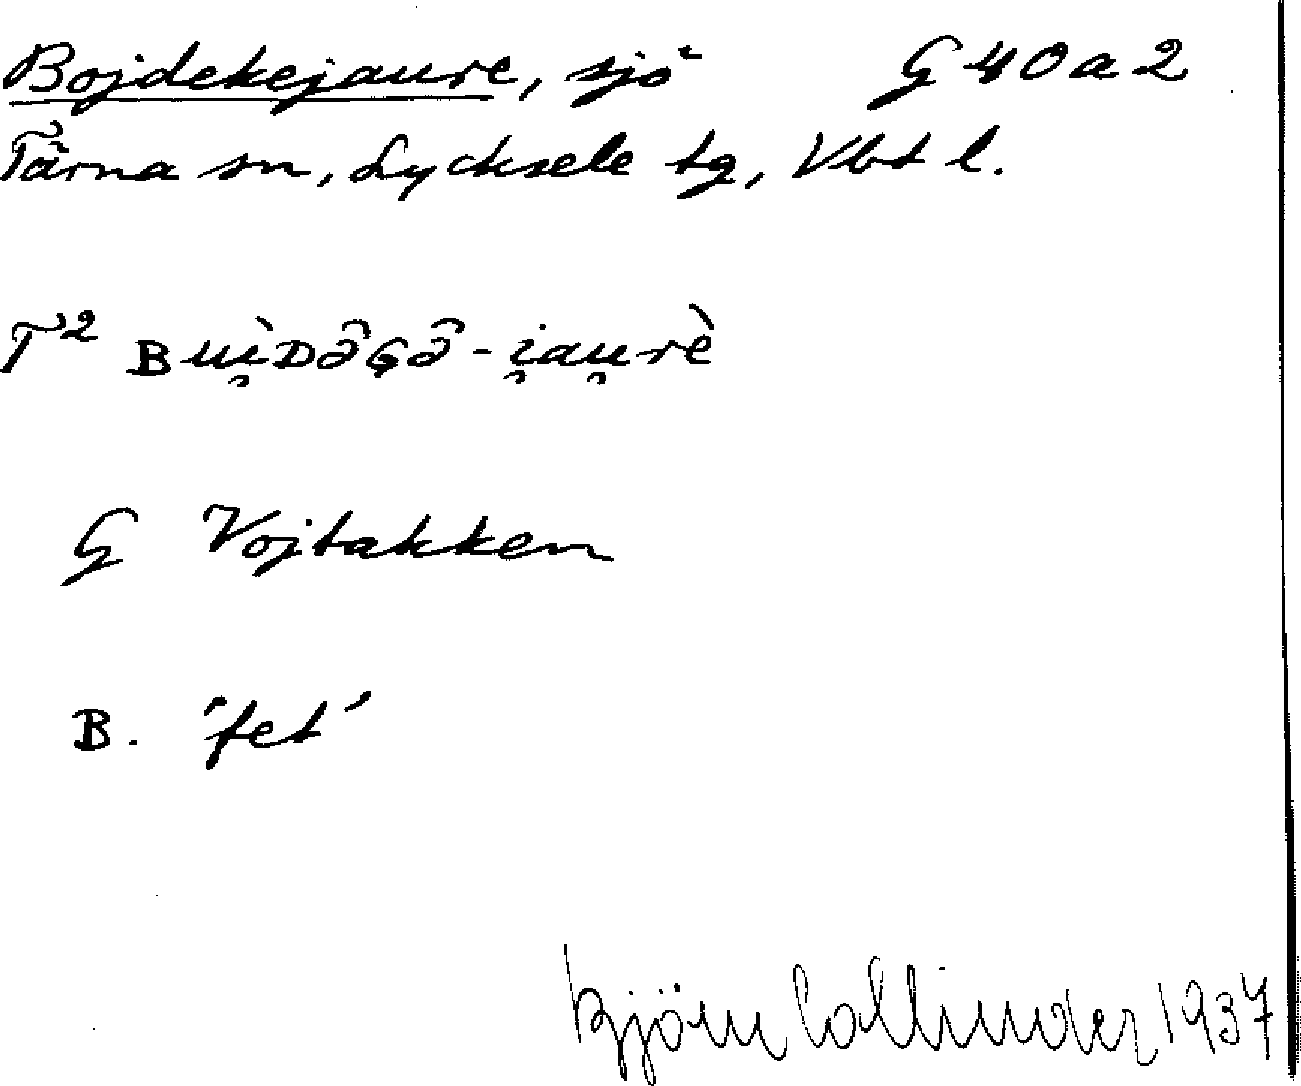 Bojdekejaure, sjö G 40 a 2
Tärna sn, Lycksele tg, Vbt l.
T² ʙuì̯ᴅə̂ɢə̂-i̯au̯rè
G Vojtakken
B. 'fet'
Björn Collinder 1937